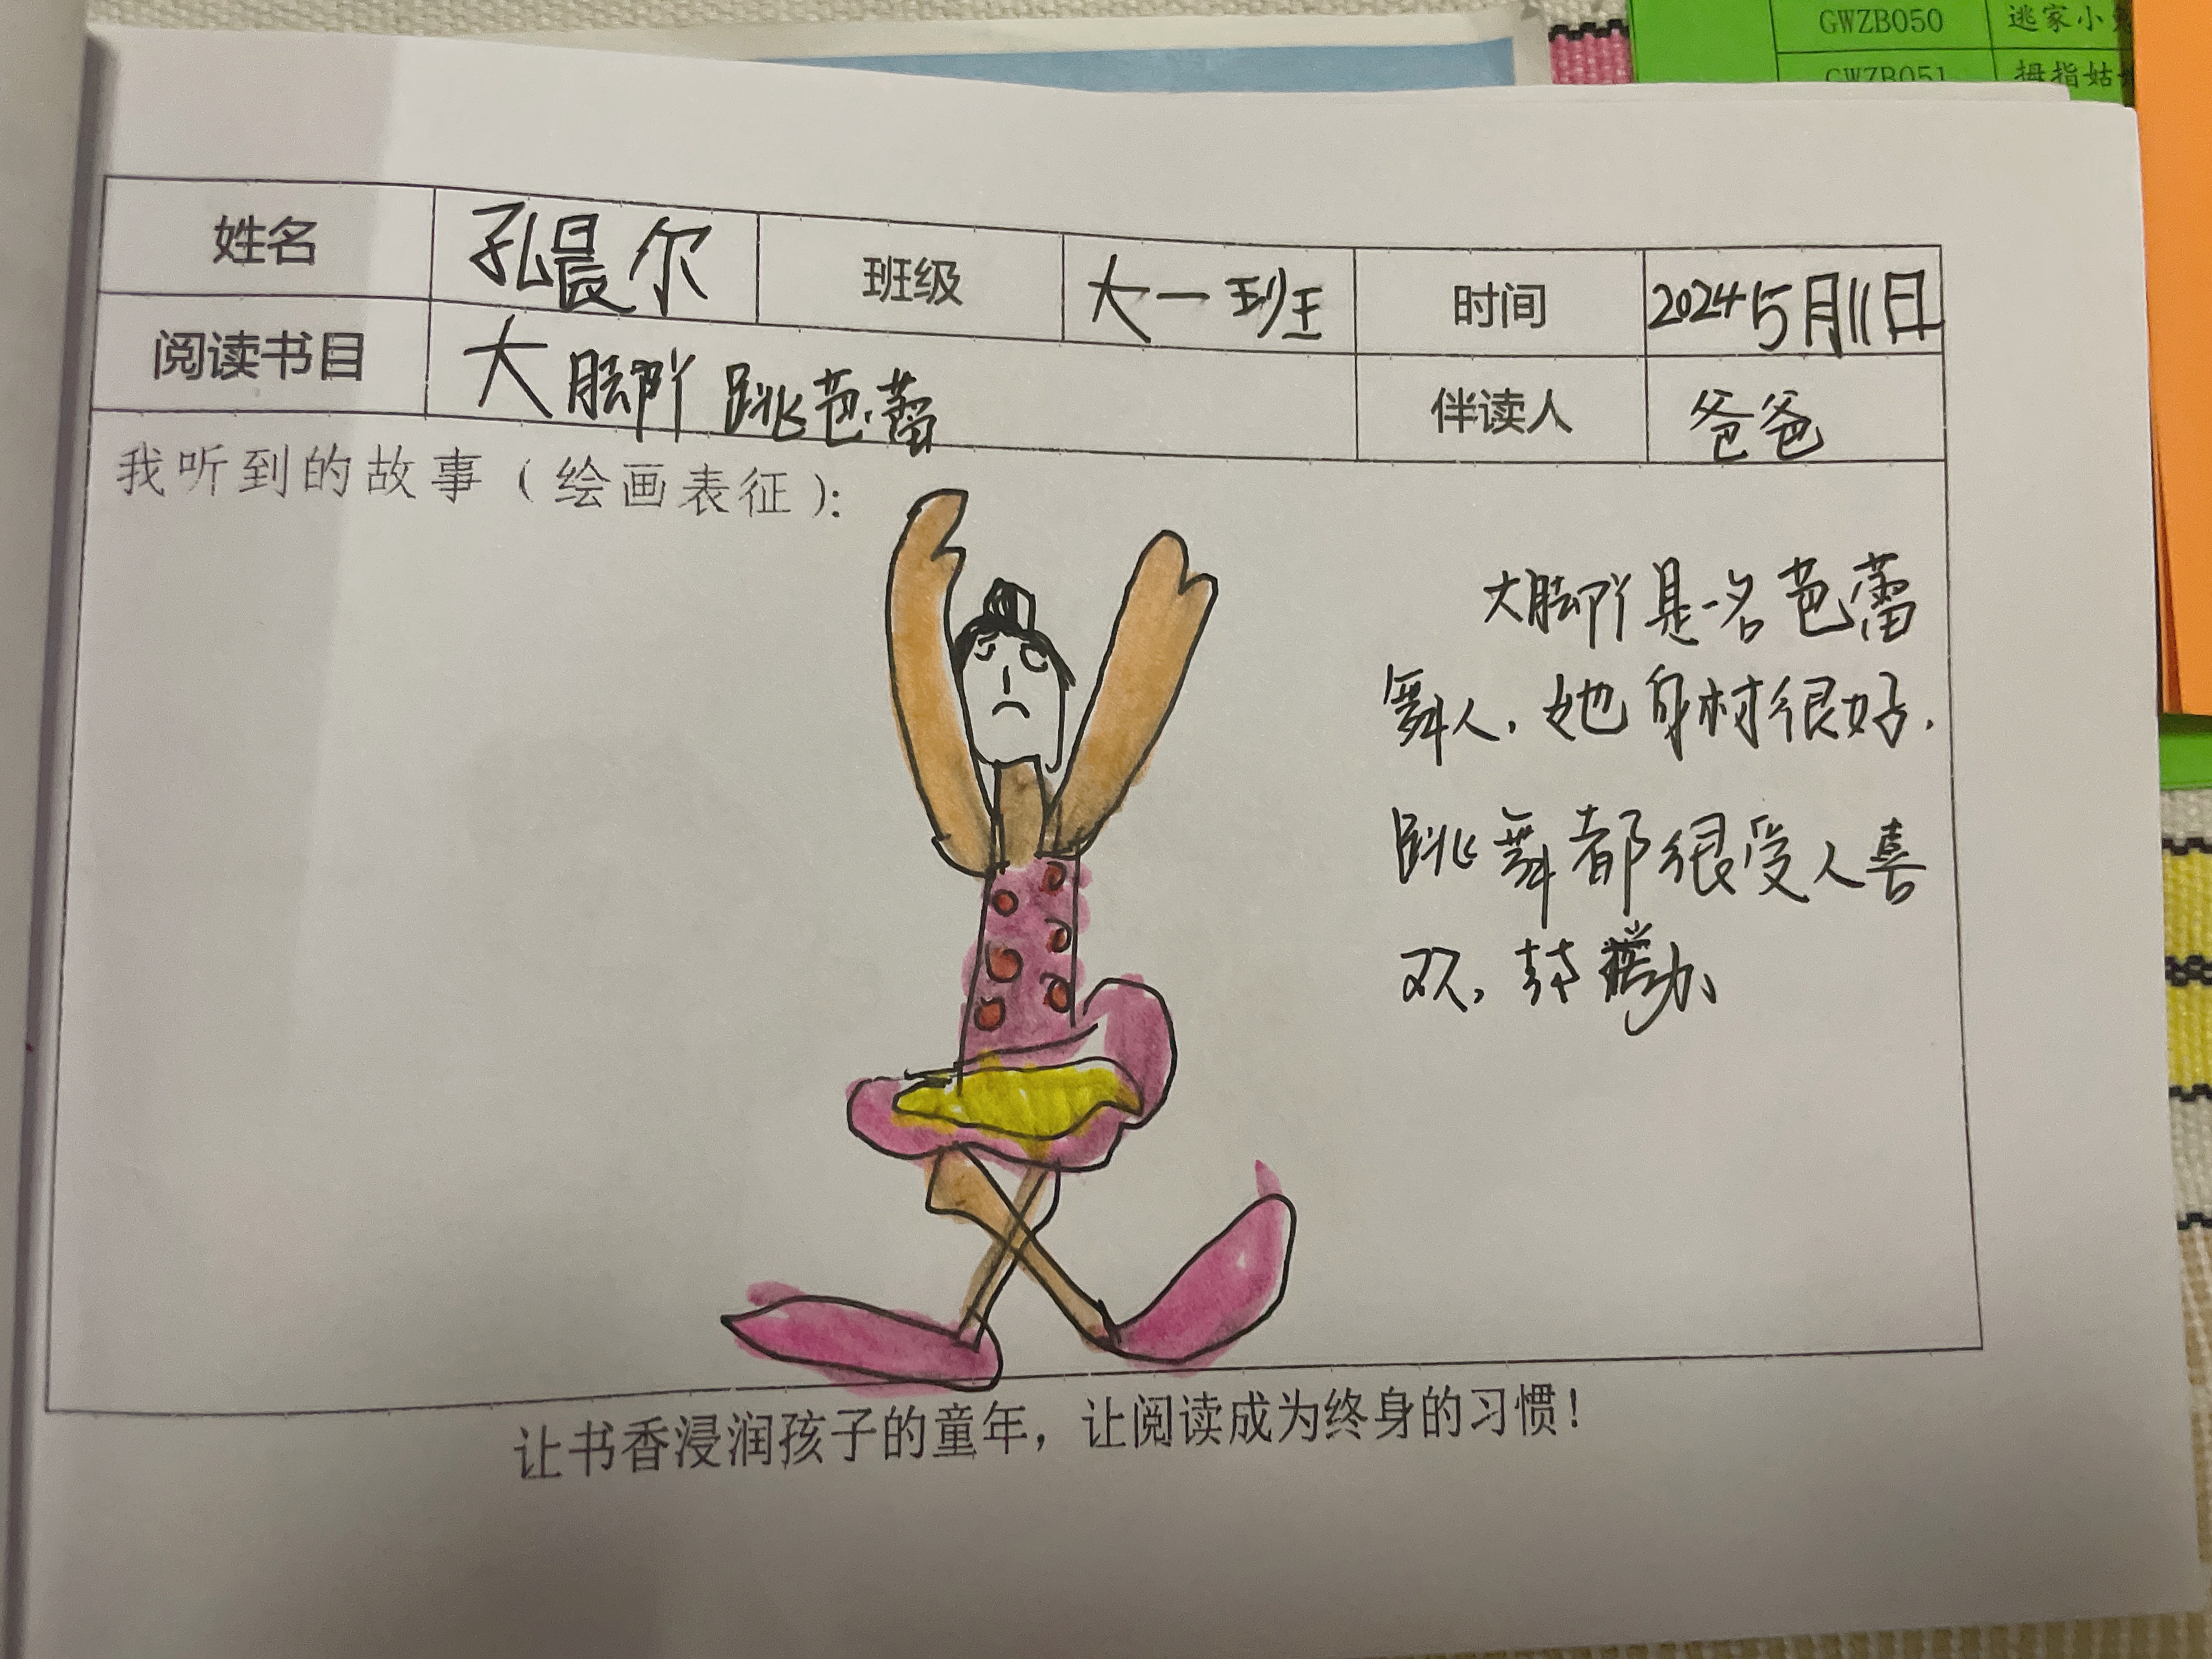 GWZB050 逃家小
GWZB051 拇指姑
姓名 孔晨尔 班级 大一班 时间 2024 5月11日
阅读书目 大脚丫跳芭蕾 伴读人 爸爸
我听到的故事（绘画表征）：
大脚丫是一名芭蕾
舞人，她身材很好.
跳舞都很受人喜
欢，
让书香浸润孩子的童年，让阅读成为终身的习惯！